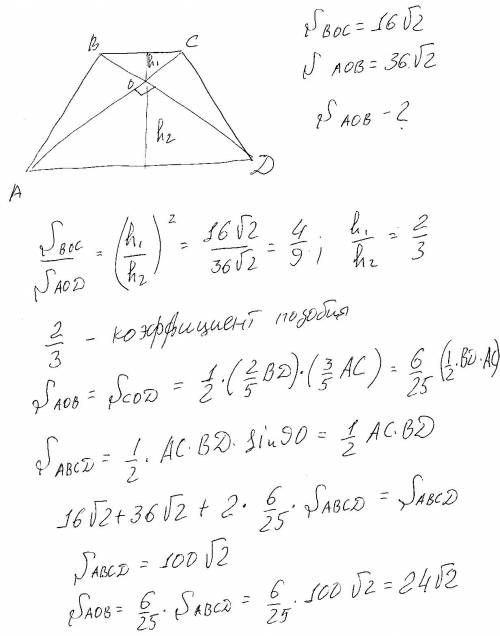 S BOC = 16√2
S AOB = 36√2
S AOB - ?
B C
h₁
O
h₂
A D
S BOC / S AOD = (h₁/h₂)² = 16√2/36√2 = 4/9 ; h₁/h₂ = 2/3
2/3 - коэффициент подобия
S AOB = S COD = 1/2 · (2/5 BD) · (3/5 AC) = 6/25 (1/2 · BD · AC)
S ABCD = 1/2 · AC · BD · sin 90 = 1/2 AC · BD
16√2 + 36√2 + 2 · 6/25 · S ABCD = S ABCD
S ABCD = 100√2
S AOB = 6/25 · S ABCD = 6/25 · 100√2 = 24√2